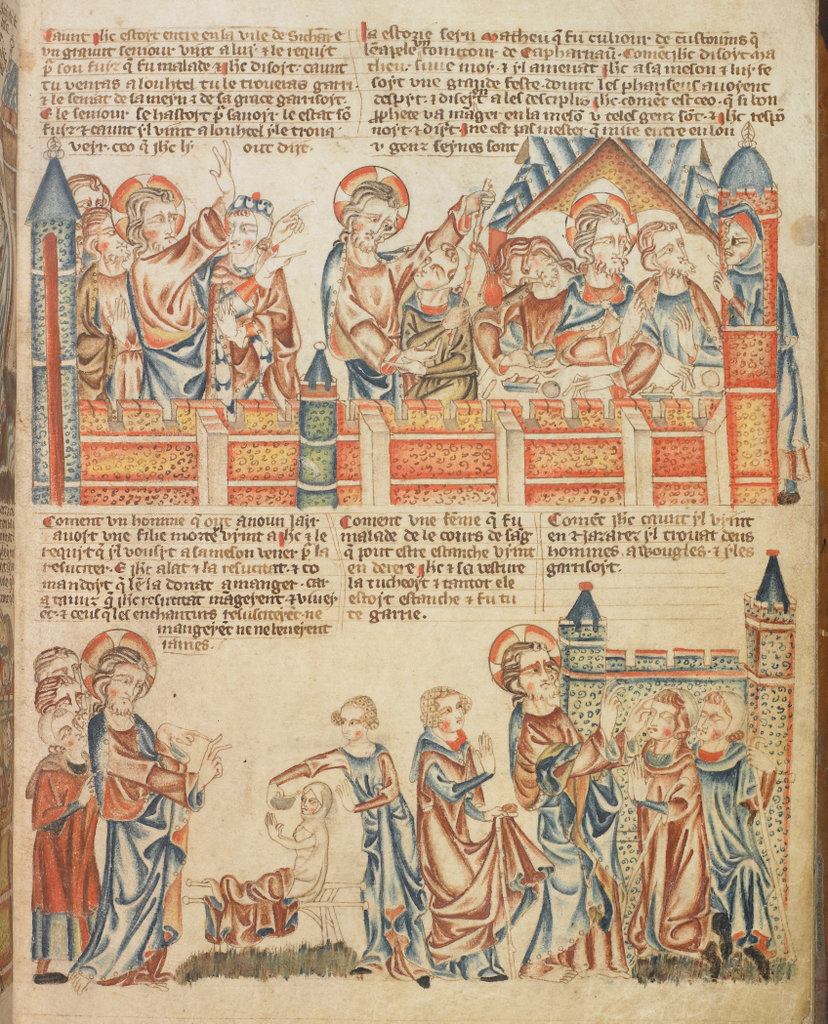 Caunt ihc estoyt entre en la vile de Sichare
vn graunt seniour vint a luy & le requit
p sou fuiz q fu malade & ihc disoyt. Caunt
tu venras a louhtel tu le troueras gari
& le seniat de sa mern & de sa grace garisoyt.
E le seniour se hastoyt p sauoyr le estat so
fuiz & caunt yl vint a louhtel yle troua
veyr. ceo q ihc ly out dit.
la estorie seyn Matheu q fu culiour de custoums q
leapele tonntour de Capharnau. Coment ihc disoyt ma
theu. siiue moy. & yl amenat ihc a sa meson & luy fe
soyt vne grande feste. dount les phariseus auoyent
despyt. & diseyt a les desciplis ihc. coment est ceo. q si bon
pphete va manger en la meso v celes genz sot. & ihc respo
noyt. & dist. ine est pas mester q mire entre en lou
v genz seynes sont
Coment vn homme q out a noun Jair
auoyt vne filie morte. vynt a ihc & le
requit q yl vousit a sa meson vener p la
resusciter. E ihc alat & la resucitat. & co
mandoyt q le la donat a manger. car
ceus q ihc resucitat mangerent & viuer
et. & ceus q les enchanturs resusciteret. ne
mangeret ne ne leuerent
iames.
Coment vne feme q fu
malade de le cours de sag
q pout estre estanche vynt
en derere ihc & sa vesture
la tucheoyt & tantot ele
estoyt estanche & fu tu
te garrie.
Comet ihc caunt yl vynt
en Nazarez yl trouat deus
hommes. awougles. & yles
garisoyt.